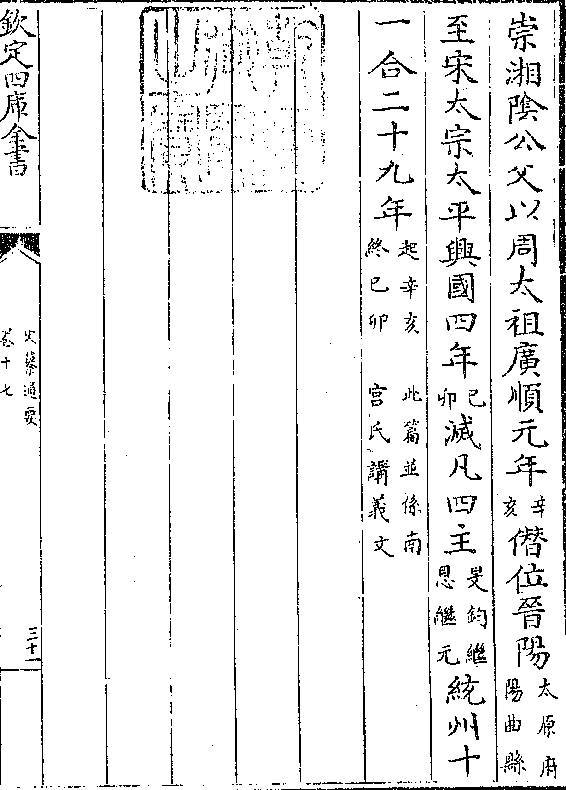 崇湘陰公父以周太祖廣順元年辛亥僭位晉陽太原府陽曲縣
至宋太宗太平興國四年己卯滅凡四主旻鈞繼恩繼元統州十
一合二十九年起辛亥終己卯 此篇並係南宮氏講義文
欽定四庫全書
史纂通要
卷十七
三十一